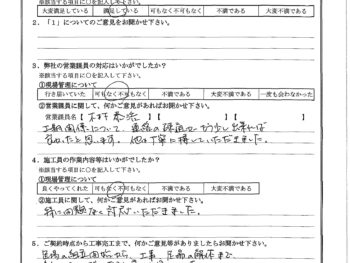 ※該当する項目に○を記入し下さい。
大変満足している 満足している 可もなく不可もなく 不満である 大変不満である
2．「1」についてのご意見をお聞かせ下さい。
3．弊社の営業課員の対応はいかがでしたか？
※該当する項目に○を記入して下さい。
①現場管理について
行き届いていた 可もなく不可もなく 不満である 大変不満である 一度も会わなかった
②営業課員に関して、何かご意見があればお聞かせ下さい。
営業課員名【 】【 】【 】
工期関係について、連絡の確認が もう少し出来れば
良かったと思います。他は丁寧に接していただきました。
4．施工員の作業内容等はいかがでしたか？
※該当する項目に○を記入して下さい。
①現場管理について
良くやってくれた 可もなく不可もなく 大変不満である
②施工員に関して、何かご意見があればお聞かせ下さい。
特に問題なく対応いただきました。
5．ご契約時点から工事完工まで、何かご意見等がありましたらお聞かせ下さい。